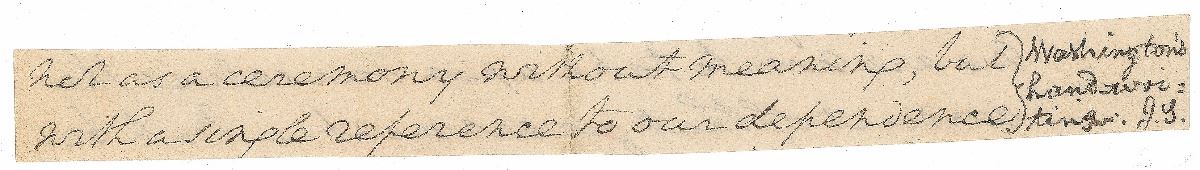 not as a ceremony without meaning, but
with a single reference to our dependence
Washington's
handwri=
ting. J.S.